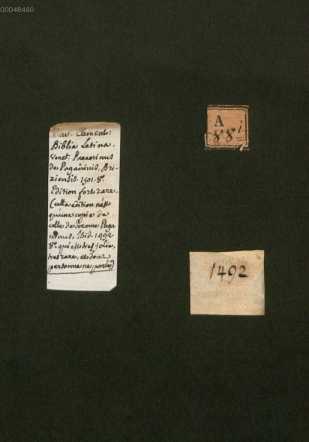 00048466
Biblia Latina.
Venet. Paganinus
de Paganinis, Bri-
xiensis. 1501. 8°.
Edition fort rare.
Cette édition n'est
qu'une copie de
celle de Jerome Paga
Ibid. 1492
8°. qui est très jolie,
très rare, et dont
personne n'a parlé
A
88i
1492